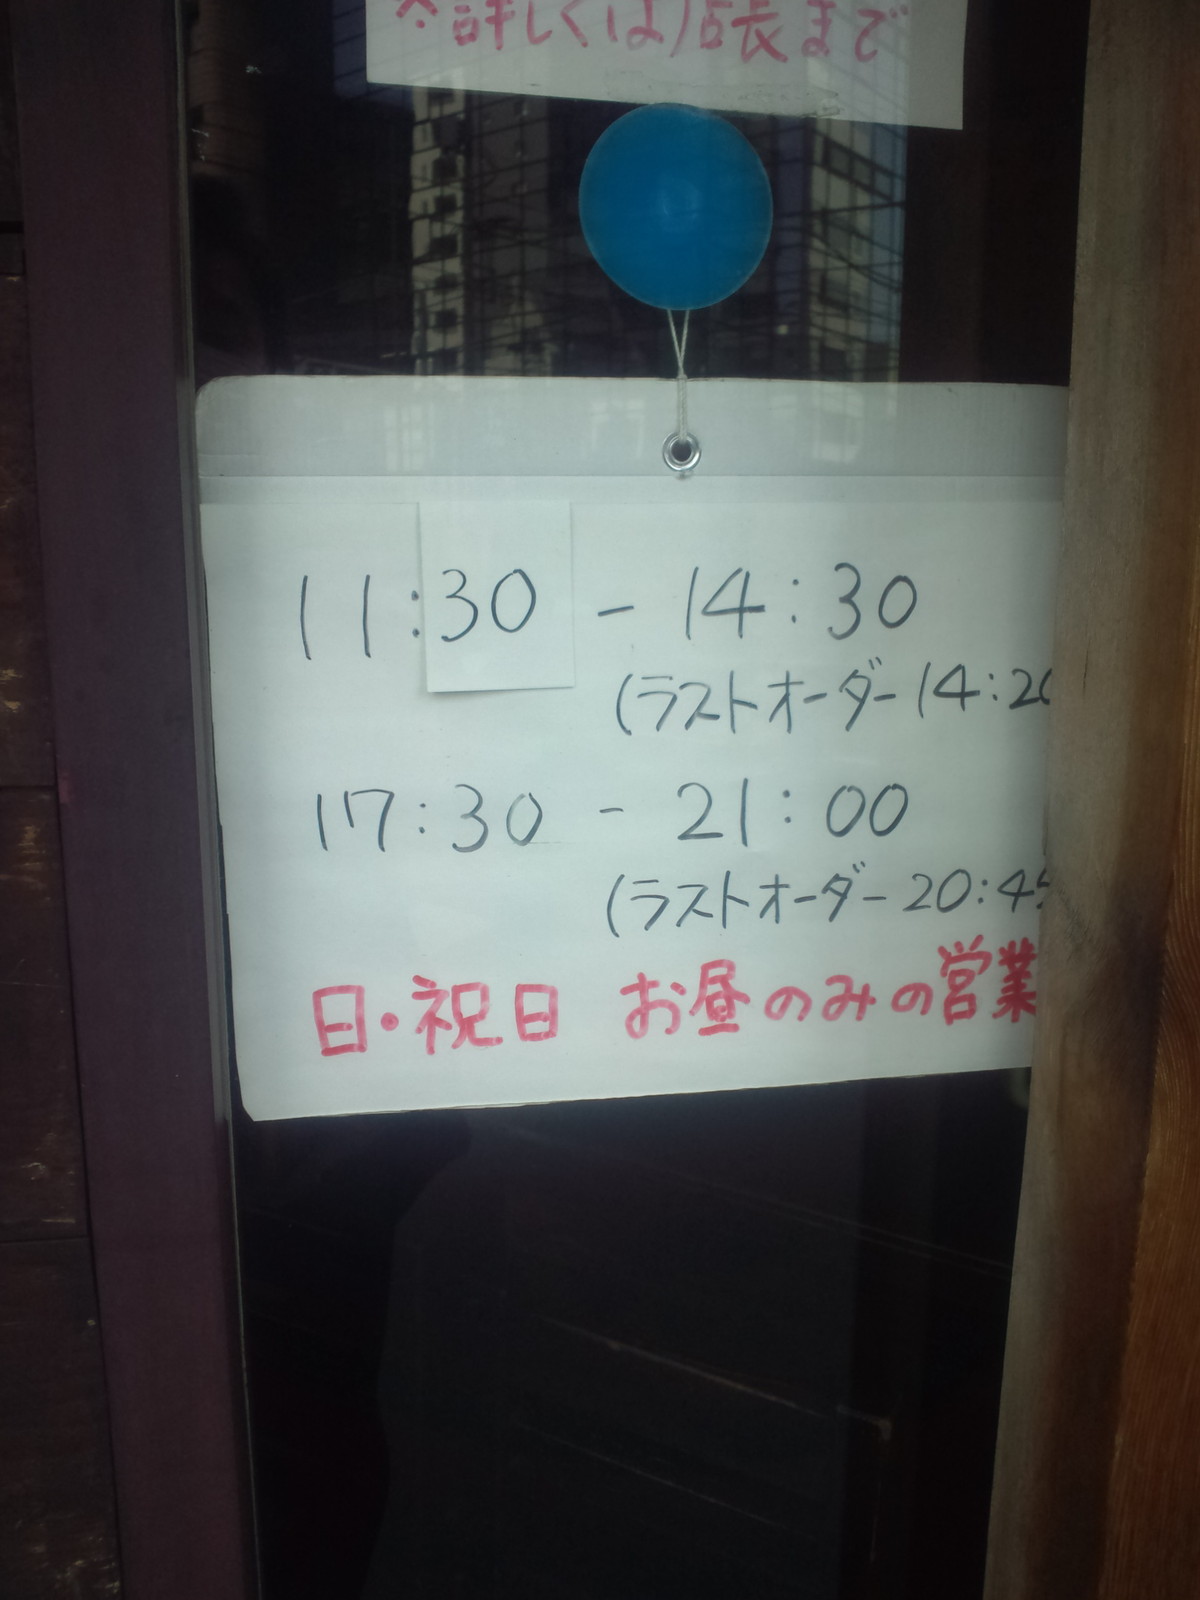 ※詳しくは店長まで
11:30 - 14:30
(ラストオーダー 14:20
17:30 - 21:00
(ラストオーダー 20:45
日・祝日 お昼のみの営業